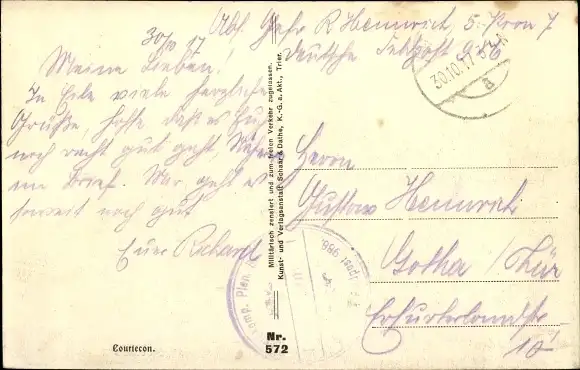 30/10 17
Abs. Gefr. R Hennrich, 5.
Deutsche Feldpost 986
Meine Lieben!
In Eile viele herzliche
Grüße, hoffe daß es Euch
noch recht gut geht,
ein Brief. Mir geht es
soweit noch gut
Euer Richard
30.10.17
a
Militärisch zensiert und zum freien Verkehr zugelassen.
Kunst- und Verlagsanstalt Schaar & Dathe, K.-G. a. Akt., Trier.
Herrn
Gustav Hennrich
Gotha / Thür
Erfurterlandstr
10
Nr.
572
Courtecon.